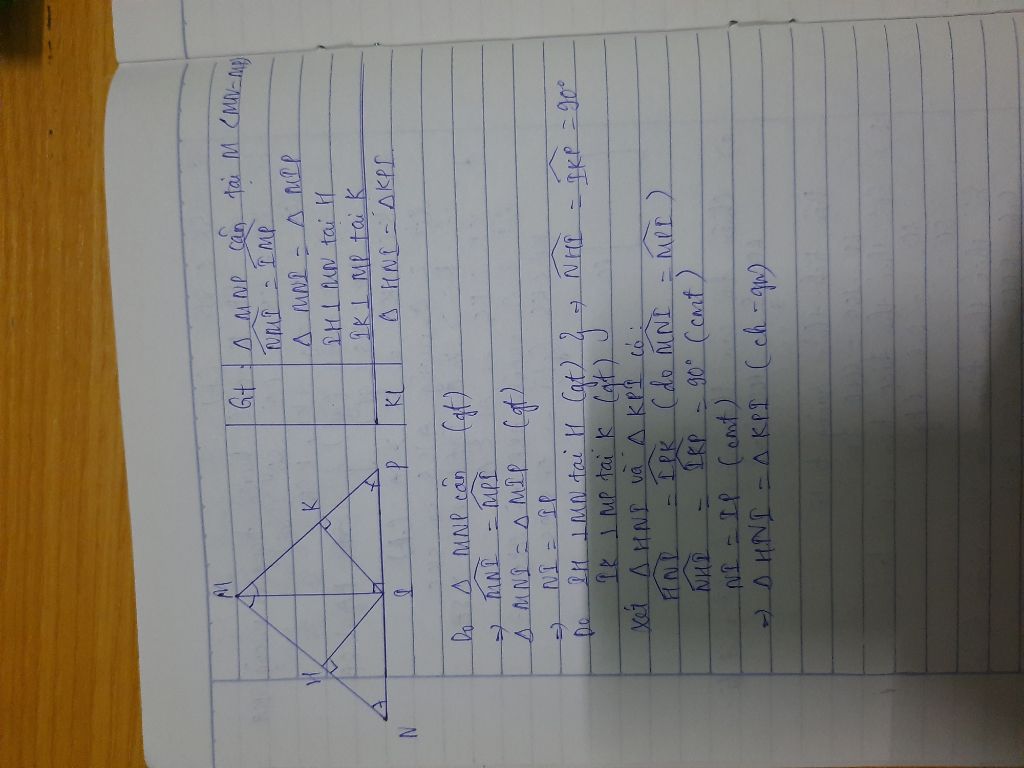 M
H
K
N
I
P
Gt
Δ MNP cân tại M (MN=MP)
NMI = IMP
Δ MNI = Δ MIP
IH ⊥ MN tại H
IK ⊥ MP tại K
Kl
Δ HNI = Δ KPI
Do Δ MNP cân (gt)
=> MNI = MPI
Δ MNI = Δ MIP (gt)
=> NI = IP
Do IH ⊥ MN tại H (gt) } => NHI = IKP = 90°
IK ⊥ MP tại K (gt)
Xét Δ HNI và Δ KPI có:
HNI = IPK (do MNI = MPI)
NHI = IKP = 90° (cmt)
NI = IP (cmt)
=> Δ HNI = Δ KPI (ch - gn)